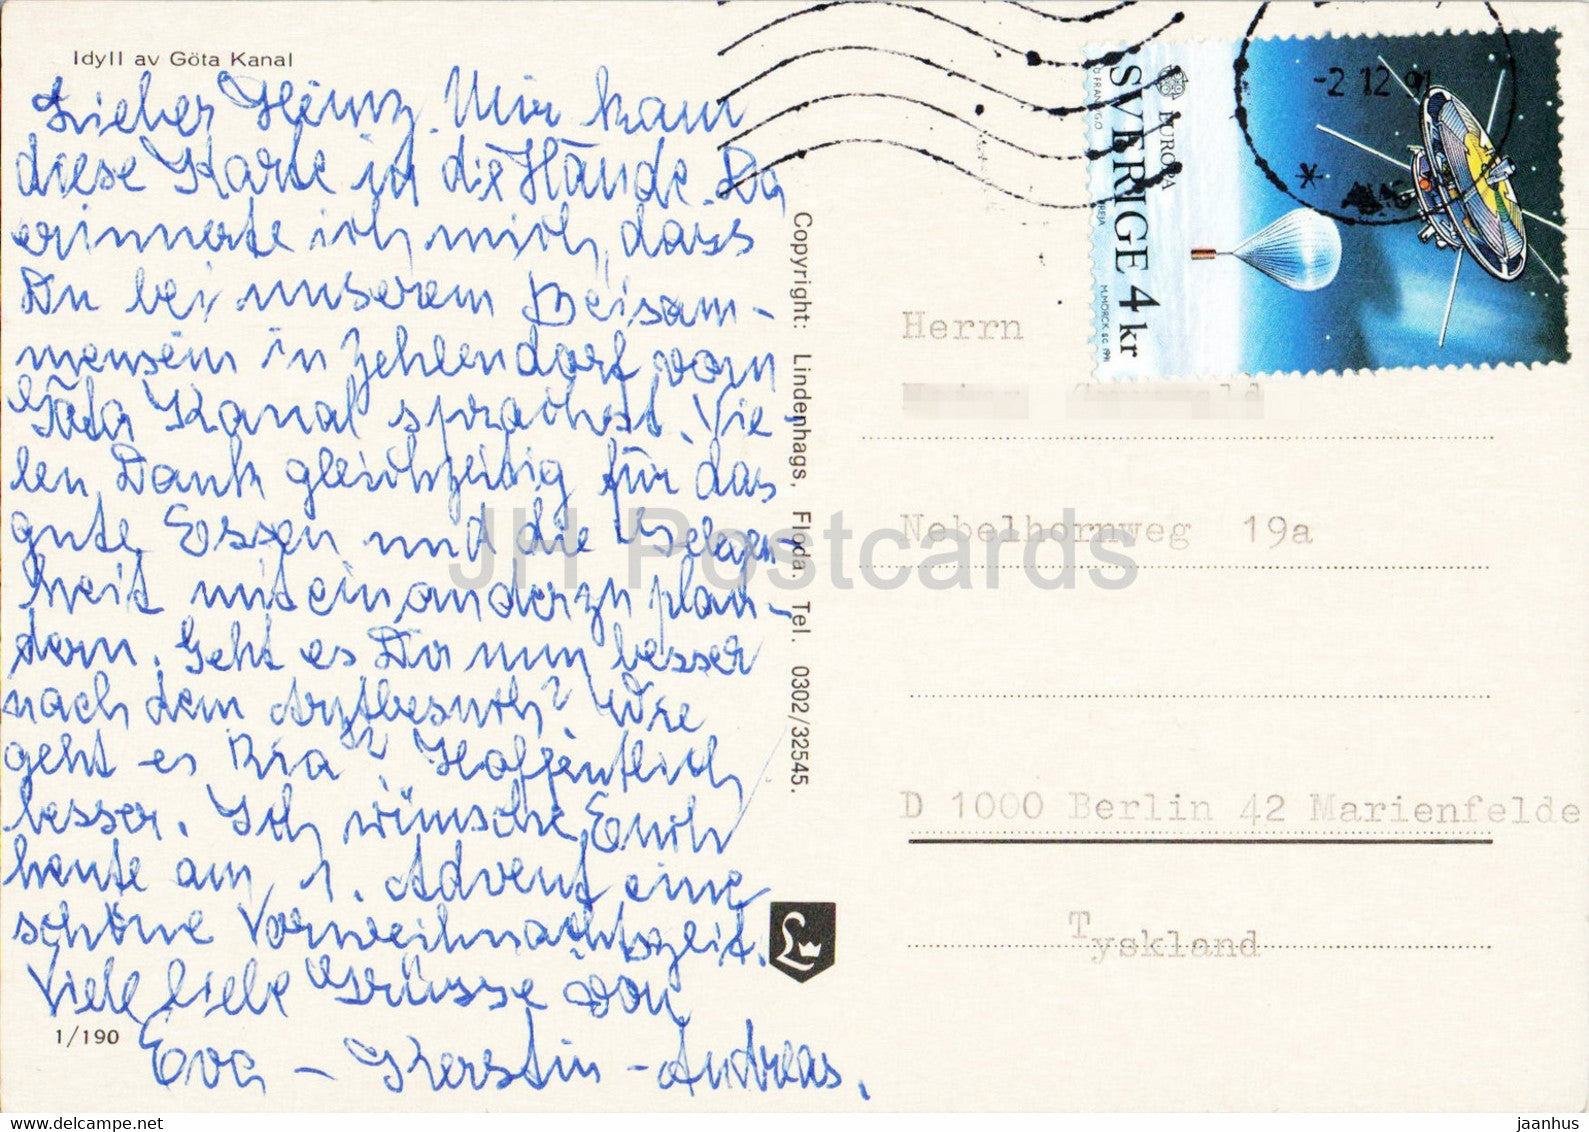 Idyll av Göta Kanal
Lieber Heinz. Mir kam
diese Karte in die Hände. Da
erinnerte ich mich, dass
Du bei unserem Beisam-
mensein in Zehlendorf vom
Göta Kanal sprachst. Vie-
len Dank gleichzeitig für das
gute Essen und die Gelegen-
heit miteinander zu plau-
dern. Geht es Dir nun besser
nach dem Arztbesuch? Wie
geht es Ria? Hoffentlich
besser. Ich wünsche Euch
heute am 1. Advent eine
schöne Vorweihnachtszeit.
Viele liebe Grüsse von
Eva - Kerstin - Andreas.
1/190
Copyright: Lindenhags, Floda. Tel. 0302/32545.
L
-2 12 91
SVERIGE 4 kr
EUROPA
M.MÖRCK SC. 1991
Herrn
Nebelhornweg 19a
D 1000 Berlin 42 Marienfelde
Tyskland
JH Postcards
www.delcampe.net
jaanhus